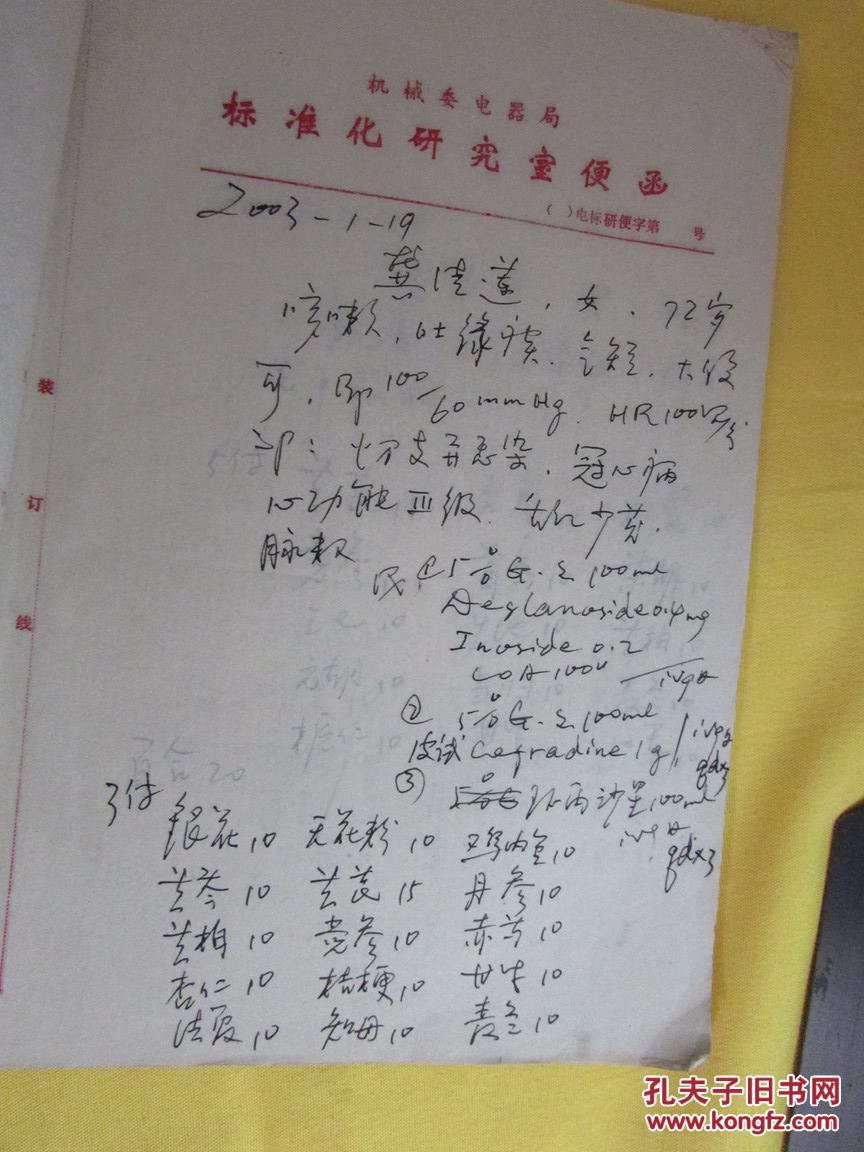 机械委电器局
标准化研究室便函
( )电标研便字第 号
2003-1-19
龚佳莲，女．72岁
咳嗽，吐绿痰．气短．大便
可．BP 100/60mmHg．HR100次/分
印：支开感染．冠心病
心功能III级．舌红少苔．
脉数
① 5%G.S 100ml
Deslanoside 0.4mg
Inoside 0.2
COA 100u ivgtt
② 5%G.S 100ml
皮试 Cefradine 1g ivgtt qdx3
③ 环丙沙星100ml
ivgtt qdx3
3付
银花10 天花粉10 鸡内金10
黄芩10 黄芪15 丹参10
黄柏10 党参10 赤芍10
杏仁10 桔梗10 甘草10
法夏10 知母10 麦冬10
百合20
5付
装
订
线
孔夫子旧书网
www.kongfz.com